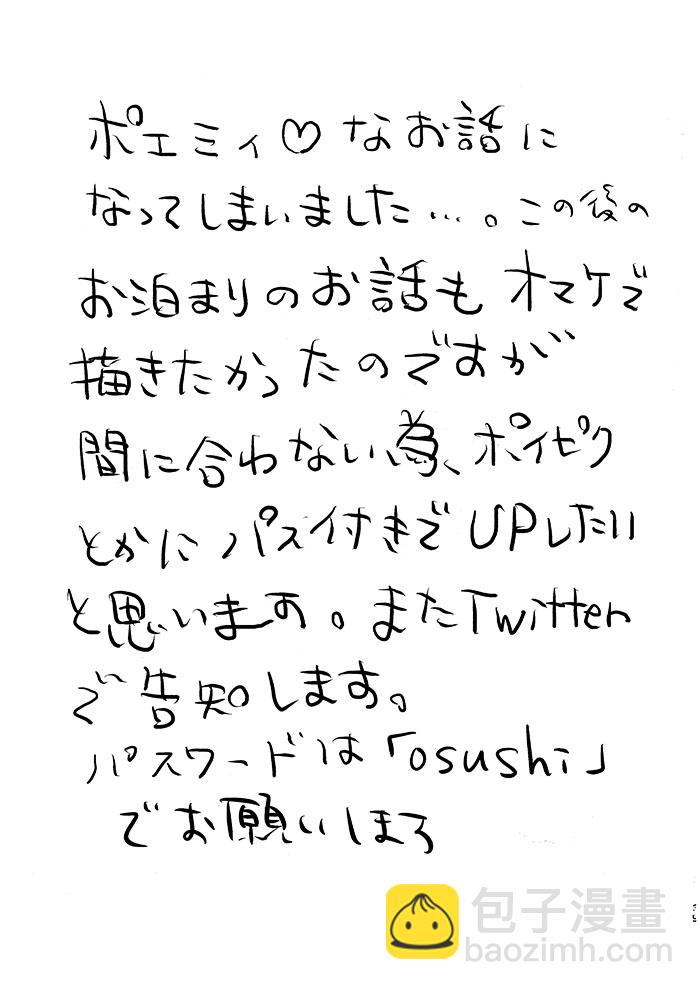 ポエミィ♡なお話に
なってしまいました…。この後の
お泊まりのお話もオマケで
描きたかったのですが
間に合わない為、ポイピク
とかにパス付きでUPしたい
と思います。またTwitter
で告知します。
パスワードは「osushi」
でお願いしまろ
包子漫畫
baozimh.com